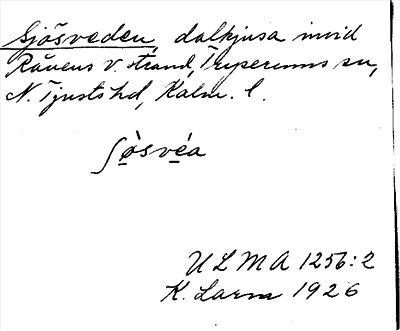 Sjösveden, dalkjusa invid
Råvens v. strand, Tryserums sn,
N. Tjusts hd, Kalm. l.
ʃösvéa
ULMA 1256:2
K. Larm 1926